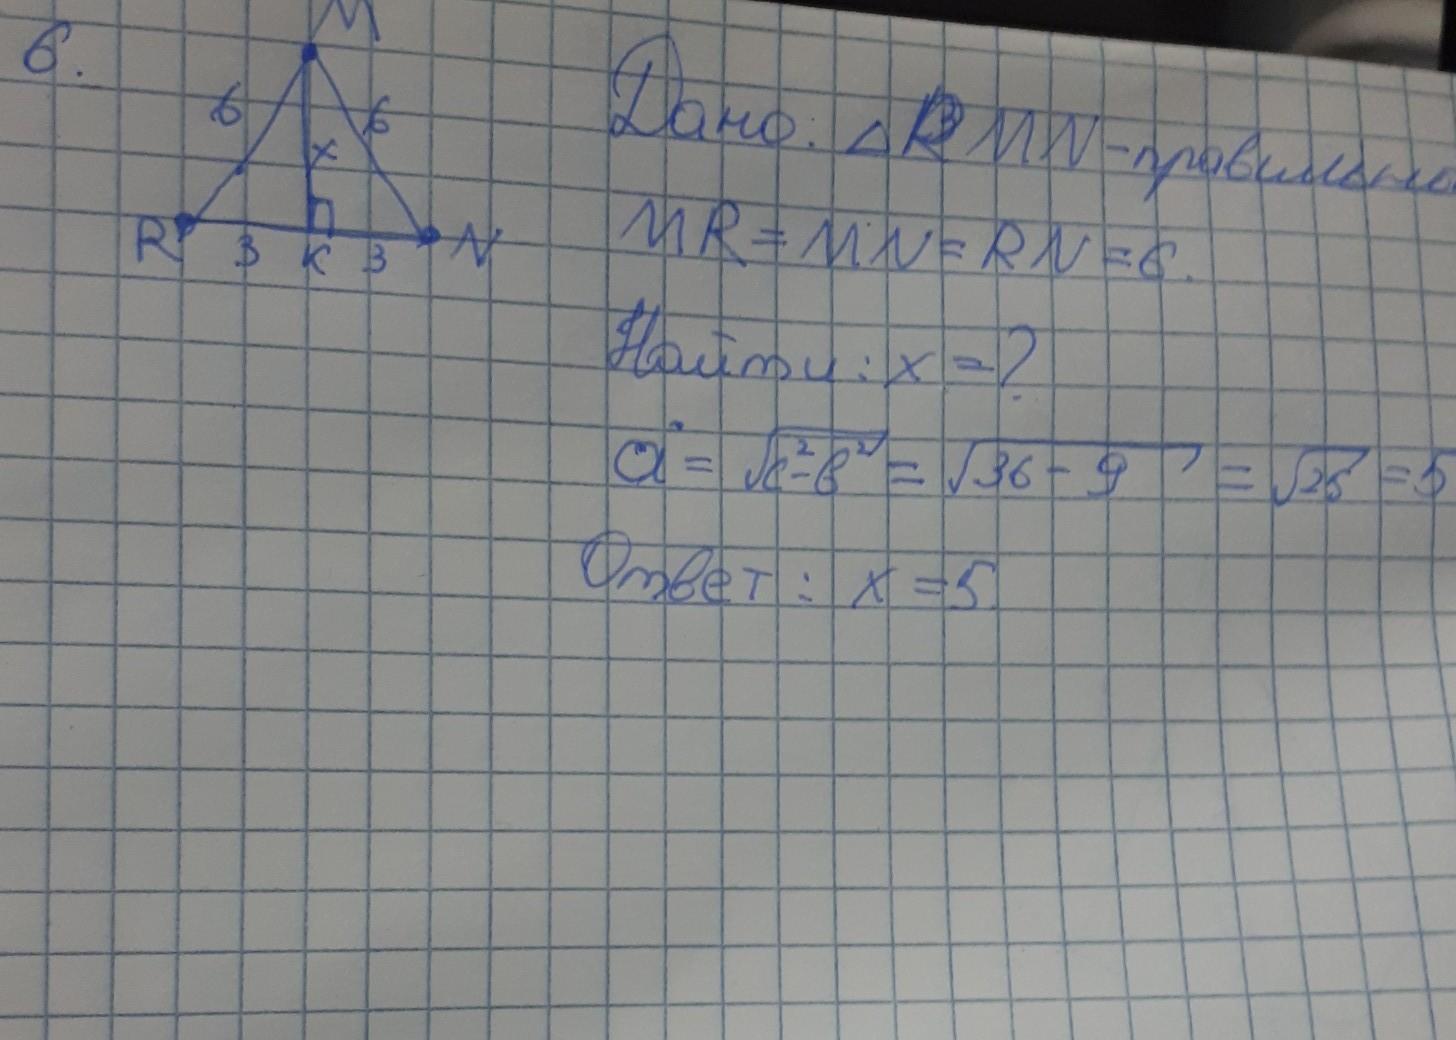 6.
M
6 6
x
R 3 K 3 N
Дано: △RMN-правильно
MR = MN = RN = 6.
Найти: x = ?
a = √c²-b² = √36 - 9 = √25 = 5
Ответ: x = 5